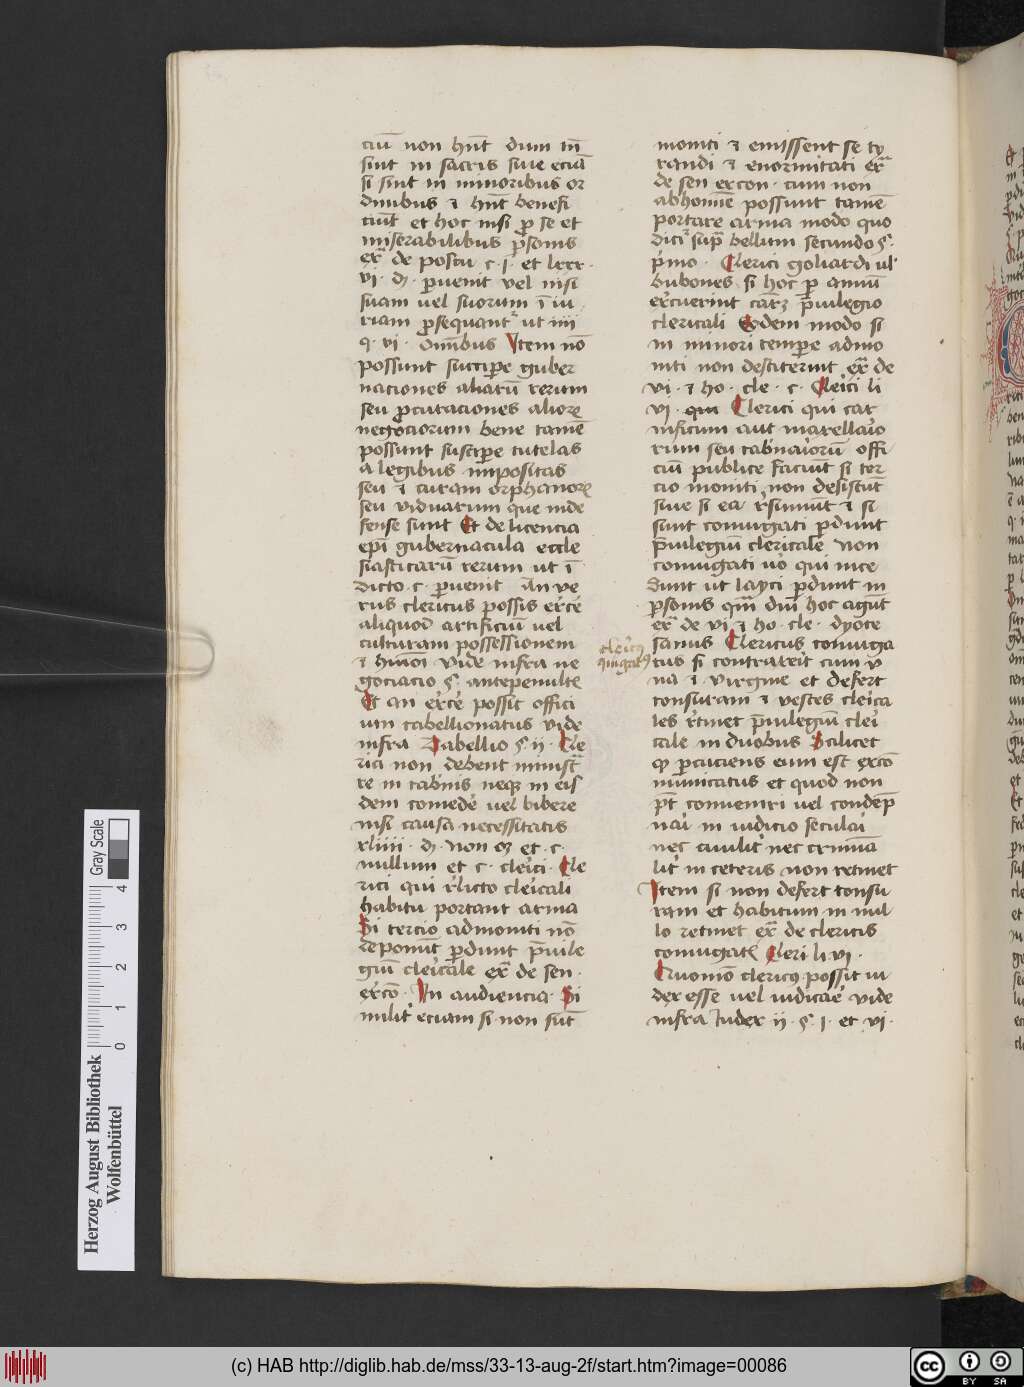 ciū non hn̄t dum tn̄
sint in sacris siue eciā
si sint in minoribus or
dinibus ⁊ hn̄t benefi
ciūt et hoc nisi ꝓ se et
miserabilibus ꝑsonis
ex̄ de postu · c · j · et lxxx ·
vi · di · ꝑuenit vel nisi
suam uel suorum īiu
riam ꝓsequant᷑ ut iiii
q · vi · Omībus Item nō
possunt suscipe guber
naciones aliarū rerum
seu ꝓcuraciones alioꝝ
negociorum bene tamē
possunt suscipe tutelas
a legibus impositas
seu ⁊ curam orphanoꝝ
seu viduarum que inde
fense sunt Et de licencia
ep̄i gubernacula eccle
siasticarū rerum ut ī
dicto · c · ꝑuenit An ve
rus clericus possis ex̄ce
aliquod artificiū uel
culturam possessionem
⁊ hmōi vide infra ne
gociacio § · antepenultᷤ
Et an ex̄ce possit offici
um tabellionatus vide
infra Tabellio § ij · Cle
rici non debent minist᷑
re in tab̄nis neqꝫ in eis
dem comed̄e uel bibere
nisi causa necessitatis
xliiii · di · non oꝫ et · c ·
nullum et · c · cleīci · Cle
rici qui r̄licto cleīcali
habitu portant arma
Si tercio admoniti nō
deponūt ꝑdunt p̄uile
giū cleīcale ex̄ de sen ·
excō · In audiencia · Si
milit᷑ eciam si non sūt
moniti ⁊ emissent se ty
randi ⁊ enormitati ex̄
de sen excon · cum non
abhomīē possunt tamē
portare arma modo quo
dici᷑ sup̄ bellum secundo § ·
p̄mo · Clerici goliardi ul᷑
bubones si hoc ꝑ annū
ex̄cuerint car̄ꝫ p̄uilegio
clericali Eodem modo si
in minori tempe admo
niti non destiterint ex̄ de
vi · ⁊ ho · cle · c · Cleīci li
vj · qui Clerici qui car
nificum aut macellaīo
rum seu tab̄naīorū offi
ciū publice faciūt si ter
cio moniti non desistūt
siue si ea r̄sumūt ⁊ si
sunt coniugati ꝑdunt
p̄uilegiū clericale Non
coniugati uo᷑ qui ince
dunt ut layci ꝑdunt in
ꝑsonis qm̄ diu hoc agūt
ex̄ de vi ⁊ ho · cle · dyoce
cleīcꝰ
ꝯiugatꝰ
sanus Clericus coniuga
tus si contraxeit cum v
na ⁊ virgine et defert
tonsuram ⁊ vestes cleīca
les r̄tinet p̄uilegiū cleī
cale in duobus Scilicet
ꝙ ꝑcuciens eum est excō
municatus et quod non
pn̄t conueniri uel condēp
nai᷑ in iudicio seculaī
nec ciuilit᷑ nec crimīa
lit᷑ in ceteris non retinet
Item si non defert tonsu
ram et habitum in nul
lo retinet ex̄ de clericis
coniugatᷤ Cleri li vj ·
Quomō clericꝰ possit iu
dex esse uel iudicaē vide
infra Judex ij · § · j · et vj ·
Gray Scale
0 1 2 3 4
Herzog August Bibliothek
Wolfenbüttel
(c) HAB http://diglib.hab.de/mss/33-13-aug-2f/start.htm?image=00086
cc BY SA